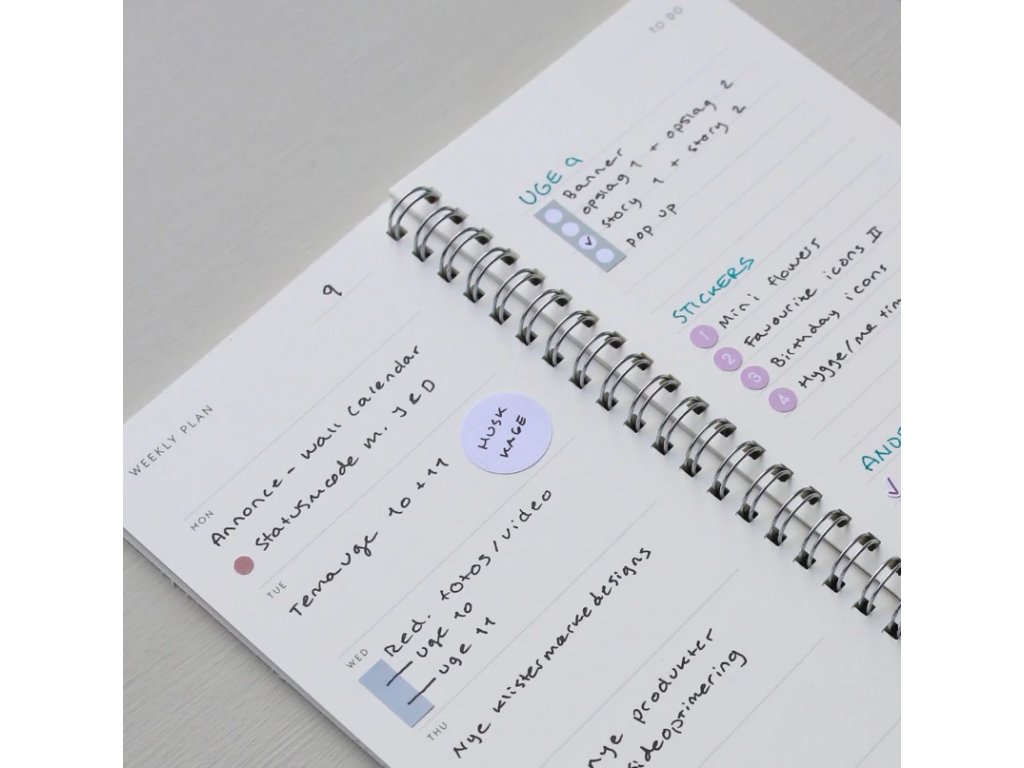 WEEKLY PLAN
9
MON
Annonce - wall calendar
Statusmøde m. J&D
TUE
Tema uge 10 + 11
HUSK
KAGE
WED
Red. fotos/video
- uge 10
- uge 11
THU
Nye klistermærkedesigns
nye produkter
TO DO
UGE 9
Banner
opslag 1 + opslag 2
✓ story 1 + story 2
pop up
STICKERS
1 Mini flowers
2 Favourite icons II
3 Birthday icons
4 Hygge/me